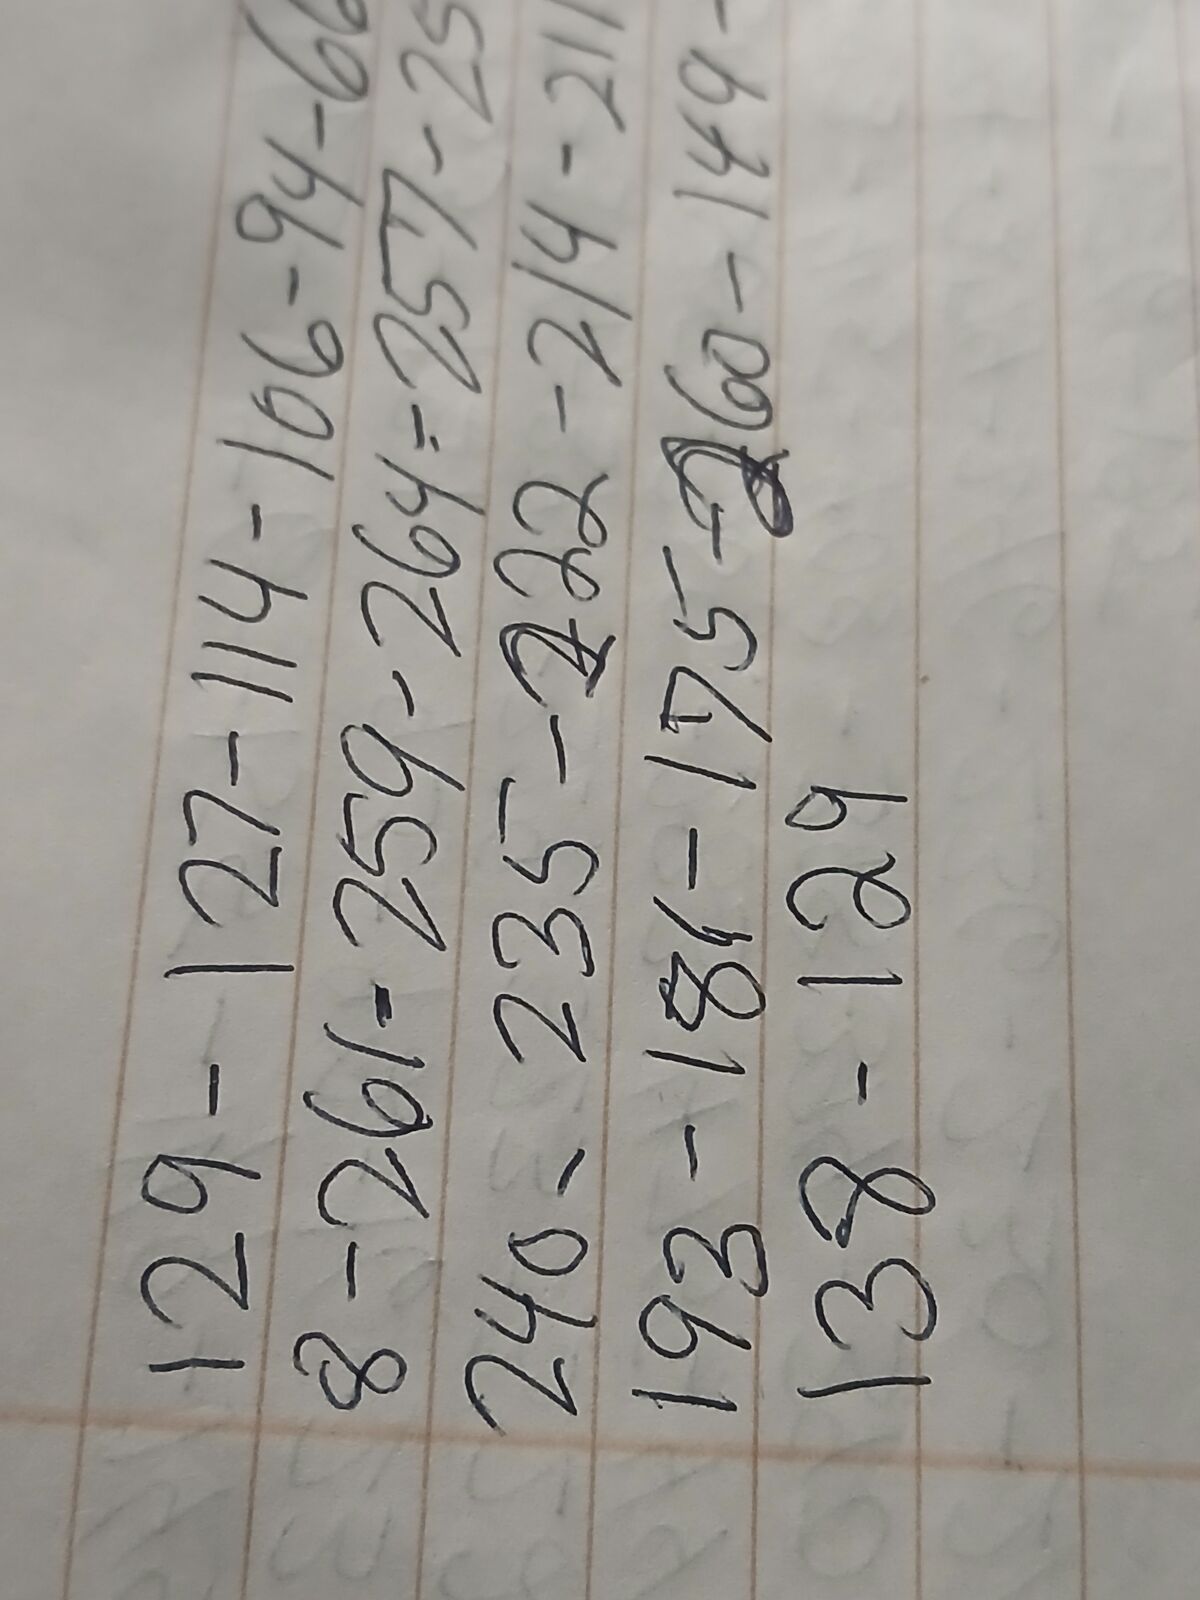 129 - 127 - 114 - 106 - 94 - 66
8 - 261 - 259 - 264 = 257 - 25
240 - 235 - 222 - 214 - 211
193 - 186 - 175 - 260 - 149 -
138 - 129